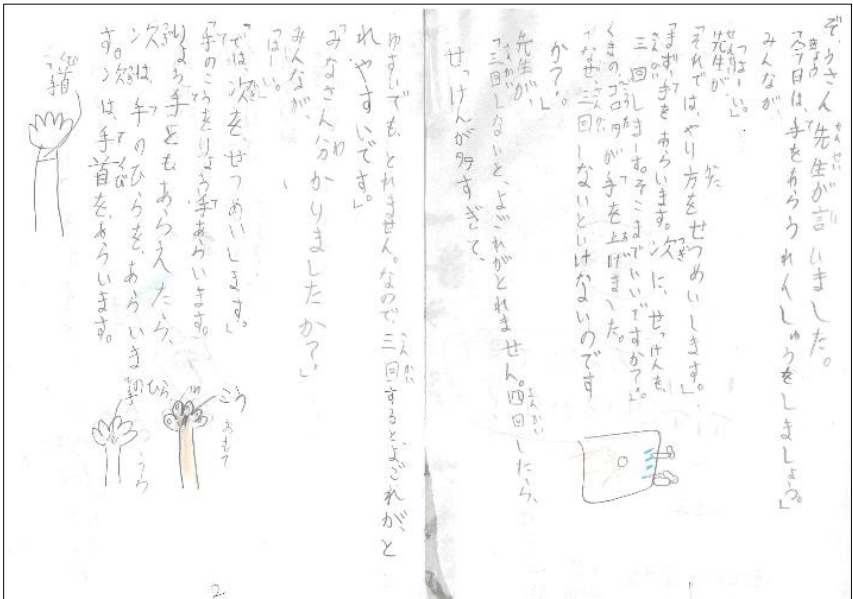 ぞうさん先生が言いました。
「今日は、手をあらうれんしゅうをしましょう。」
みんなが、
「はーい。」
先生が、
「それでは、やり方をせつめいします。」
「まず、手をあらいます。次に、せっけんを、
三回しまーす。そこまでいいですか?」
くまのゴロタが手を上げました。
「なぜ、三回しないといけないのです
か?」
先生が、
「三回しないと、よごれがとれません。四回したら、
せっけんが多すぎて、
1
ゆすいでも、とれません。なので三回すると、よごれが、と
れやすいです。」
「みなさん分かりましたか?」
みんなが、
「はーい。」
「では次を、せつめいします。」
「手のこうをりょう手あらいます。
りょう手ともあらえたら、
次は、手のひらを、あらいま
す。次は、手首を、あらいます。
手首
こう
おもて
手のひら
うら
2